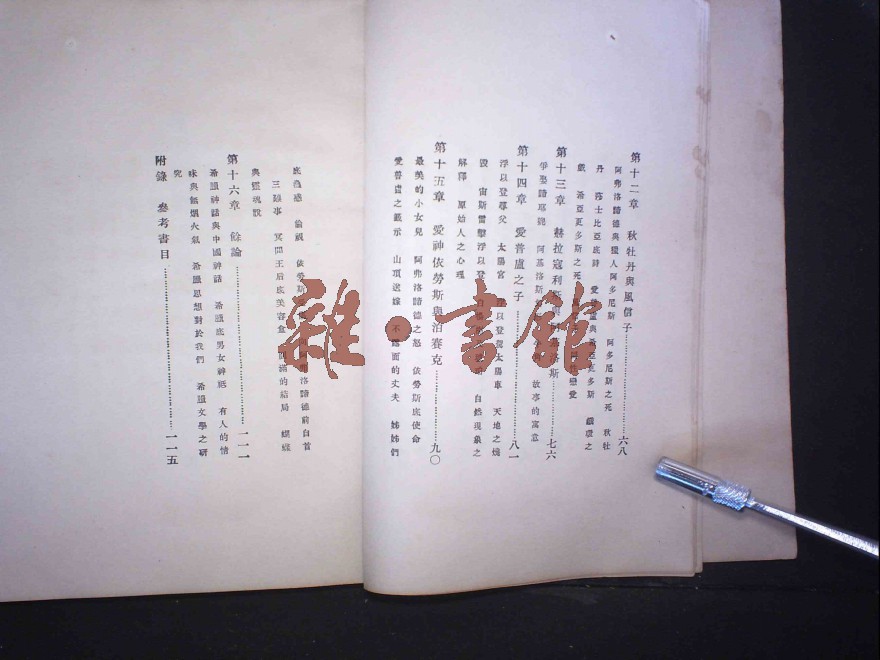 第十二章 秋牡丹與風信子……六八
阿弗洛諦德與獵人阿多尼斯 阿多尼斯之死 秋牡
丹 莎士比亞底詩 愛普盧與希亞更多斯 鐵環之
戲 希亞更多斯之死 戀愛
第十三章 赫拉寇利斯 阿基洛斯……七六
伊聖諦耶觀 阿基洛斯 故事的寓意
第十四章 愛普盧之子……八一
浮以登尋父 太陽宮 浮以登駕太陽車 天地之燒
毀 宙斯雷擊浮以登 自然現象之
解釋 原始人之心理
第十五章 愛神依勞斯與泊賽克……九〇
最美的小女兒 阿弗洛諦德之怒 依勞斯底使命
愛普盧之籤示 山頂送嫁 不露面的丈夫 姊姊們
底蠱惑 偷視 依勞斯 阿弗洛諦德前自首
三難事 冥間王后底美容盒 圓滿的結局 蝴蝶
與靈魂說
第十六章 餘論……一一一
希臘神話與中國神話 希臘底男女神祇 有人的情
味與無烟火氣 希臘思想對於我們 希臘文學之研
究
附錄 參考書目……一一五
雜·書館